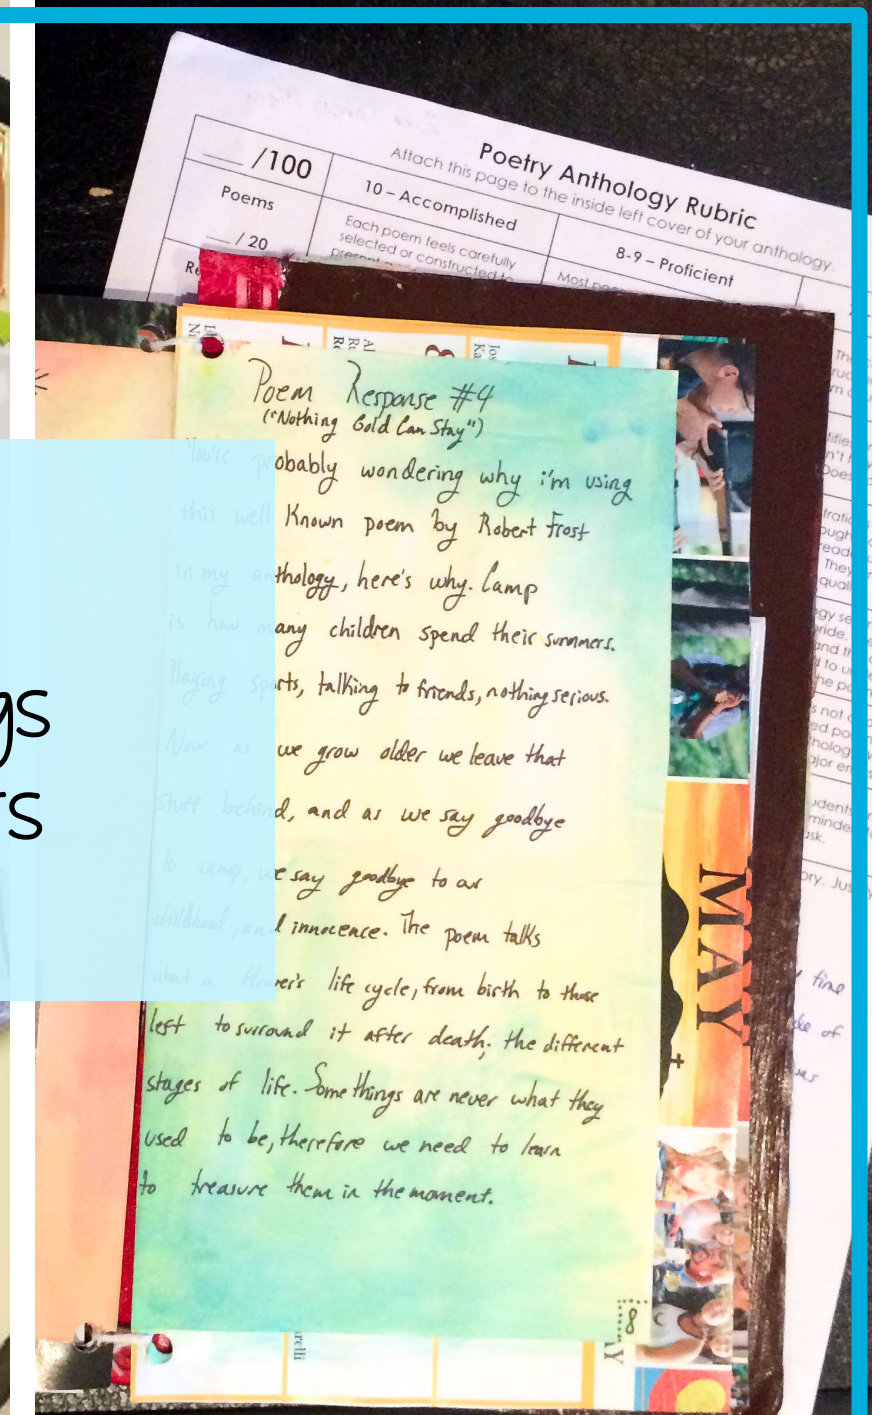 Poetry Anthology Rubric
Attach this page to the inside left cover of your anthology.
/100
10 – Accomplished
8-9 – Proficient
Poems
/ 20
Each poem feels carefully
selected or constructed to
Most
Poem Response #4
("Nothing Gold Can Stay")
You're probably wondering why i'm using
this well Known poem by Robert Frost
in my anthology, here's why. Camp
is how many children spend their summers.
Playing sports, talking to friends, nothing serious.
Now as we grow older we leave that
stuff behind, and as we say goodbye
to camp, we say goodbye to our
childhood, and innocence. The poem talks
about a flower's life cycle, from birth to those
left to surround it after death; the different
stages of life. Some things are never what they
used to be, therefore we need to learn
to treasure them in the moment.
8
MAY
time
gs
rs